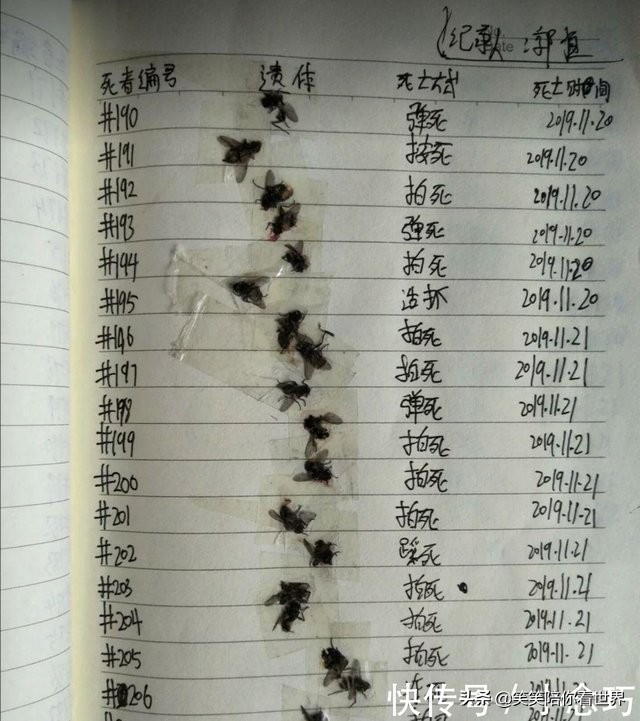 纪录人:郭直
死者编号 遗体 死亡方式 死亡时间
#190 弹死 2019.11.20
#191 按死 2019.11.20
#192 拍死 2019.11.20
#193 弹死 2019.11.20
#194 拍死 2019.11.20
#195 活抓 2019.11.20
#196 拍死 2019.11.21
#197 拍死 2019.11.21
#198 弹死 2019.11.21
#199 拍死 2019.11.21
#200 拍死 2019.11.21
#201 拍死 2019.11.21
#202 踩死 2019.11.21
#203 拍死 2019.11.21
#204 拍死 2019.11.21
#205 拍死 2019.11.21
#206
快传号/
头条@笑笑陪你看世界